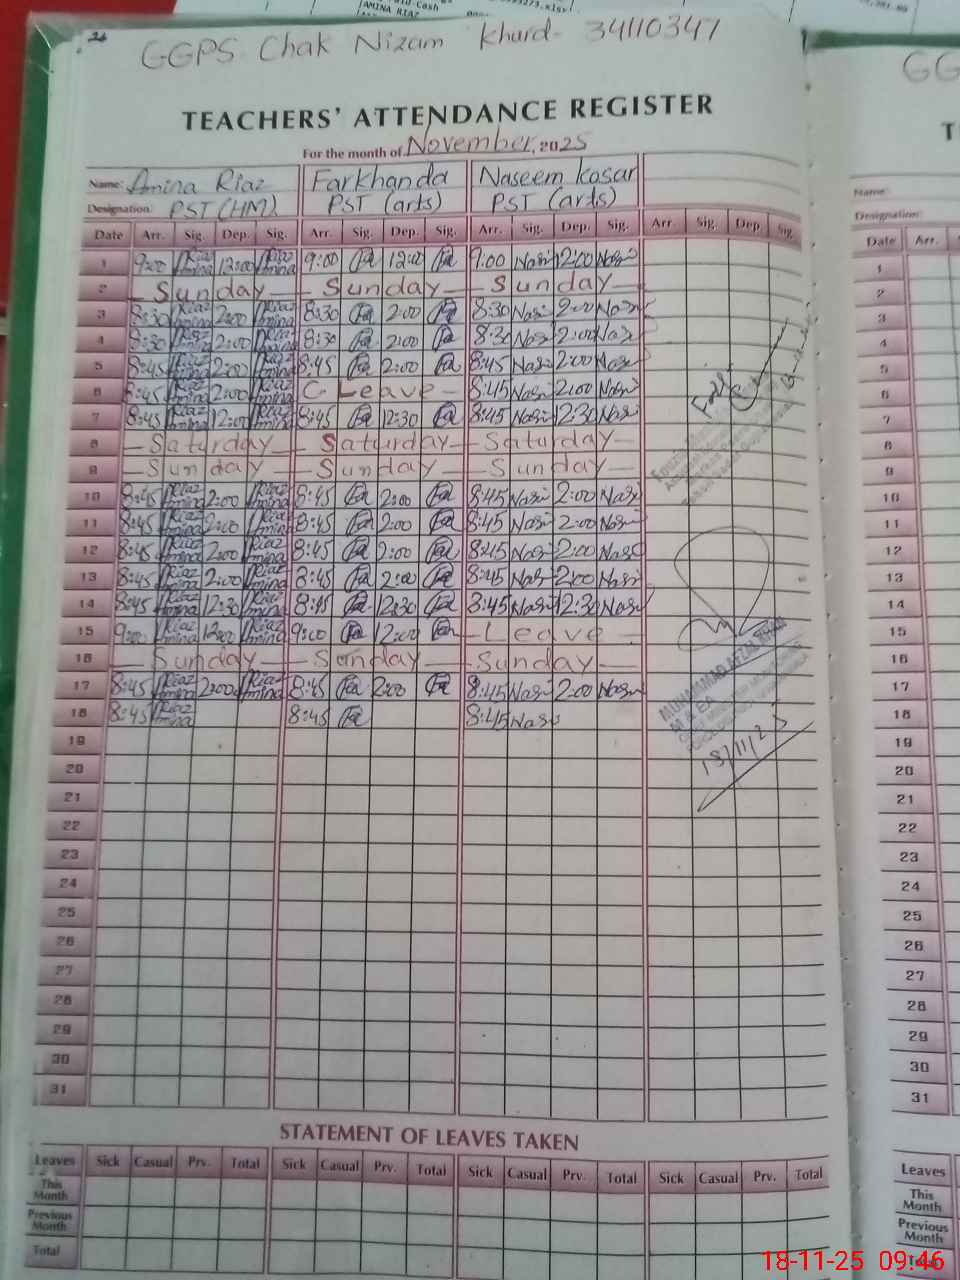 AMINA RIAZ
GGPS Chak Nizam Khurd- 34110347
TEACHERS' ATTENDANCE REGISTER
For the month of November, 2025
Name: Amina Riaz Farkhanda Naseem kosar
Designation: PST (HM) PST (arts) PST (arts)
Date Arr. Sig. Dep. Sig. Arr. Sig. Dep. Sig. Arr. Sig. Dep. Sig. Arr. Sig. Dep Sig.
1 9:00 Riaz Amina 12:00 Riaz Amina 9:00 Fa 12:00 Fa 9:00 Nasr 12:00 Nasr
2 Sunday Sunday Sunday
3 8:30 Riaz Amina 2:00 Riaz Amina 8:30 Fa 2:00 Fa 8:30 Nasr 2:00 Nasr
4 8:30 Riaz Amina 2:00 Riaz Amina 8:30 Fa 2:00 Fa 8:30 Nasr 2:00 Nasr
5 8:45 Riaz Amina 2:00 Riaz Amina 8:45 Fa 2:00 Fa 8:45 Nasr 2:00 Nasr
6 8:45 Riaz Amina 2:00 Riaz Amina C Leave - 8:45 Nasr 2:00 Nasr
7 8:45 Riaz Amina 12:00 Riaz Amina 8:45 Fa 12:30 Fa 8:45 Nasr 12:30 Nasr
8 Saturday Saturday Saturday
9 Sunday Sunday Sunday
10 8:45 Riaz Amina 2:00 Riaz Amina 8:45 Fa 2:00 Fa 8:45 Nasr 2:00 Nasr
11 8:45 Riaz Amina 2:00 Riaz Amina 8:45 Fa 2:00 Fa 8:45 Nasr 2:00 Nasr
12 8:45 Riaz Amina 2:00 Riaz Amina 8:45 Fa 2:00 Fa 8:45 Nasr 2:00 Nasr
13 8:45 Riaz Amina 2:00 Riaz Amina 8:45 Fa 2:00 Fa 8:45 Nasr 2:00 Nasr
14 8:45 Riaz Amina 12:30 Riaz Amina 8:45 Fa 12:30 Fa 8:45 Nasr 12:30 Nasr
15 9:00 Riaz Amina 12:00 Riaz Amina 9:00 Fa 12:00 Fa - Leave -
16 Sunday Sunday Sunday
17 8:45 Riaz Amina 2:00 Riaz Amina 8:45 Fa 2:00 Fa 8:45 Nasr 2:00 Nasr
18 8:45 Riaz Amina 8:45 Fa 8:45 Nasr
MUHAMMAD AFZAL
18/11/25
19
20
21
22
23
24
25
26
27
28
29
30
31
STATEMENT OF LEAVES TAKEN
Leaves Sick Casual Prv. Total Sick Casual Prv. Total Sick Casual Prv. Total Sick Casual Prv. Total
This Month
Previous Month
Total
GG
T
Name:
Designation:
Date Arr.
1
2
3
4
5
6
7
8
9
10
11
12
13
14
15
16
17
18
19
20
21
22
23
24
25
26
27
28
29
30
31
Leaves
This Month
Previous Month
Total
18-11-25 09:46